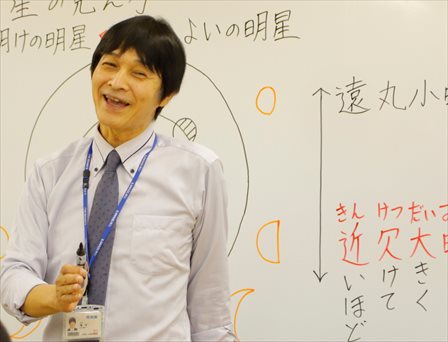 星の見え方
明けの明星 よいの明星
遠丸小
きん けつ だい
近欠大
いほど
けて
きく